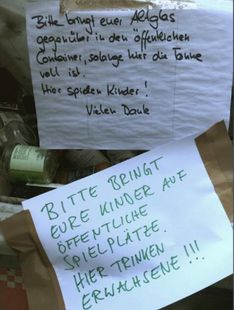 Bitte bringt euer Altglas
gegenüber in den öffentlichen
Container, solange hier die Tonne
voll ist.
Hier spielen Kinder!
Vielen Dank
BITTE BRINGT
EURE KINDER AUF
ÖFFENTLICHE
SPIELPLÄTZE.
HIER TRINKEN
ERWACHSENE!!!